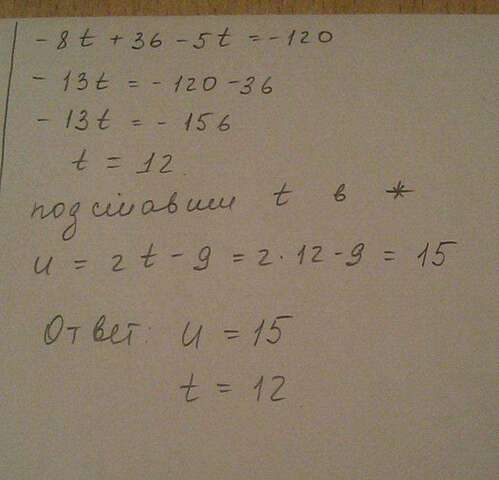 -8t + 36 - 5t = -120
-13t = -120 - 36
-13t = -156
t = 12
подставим t в *
u = 2t - 9 = 2·12 - 9 = 15
Ответ: u = 15
t = 12